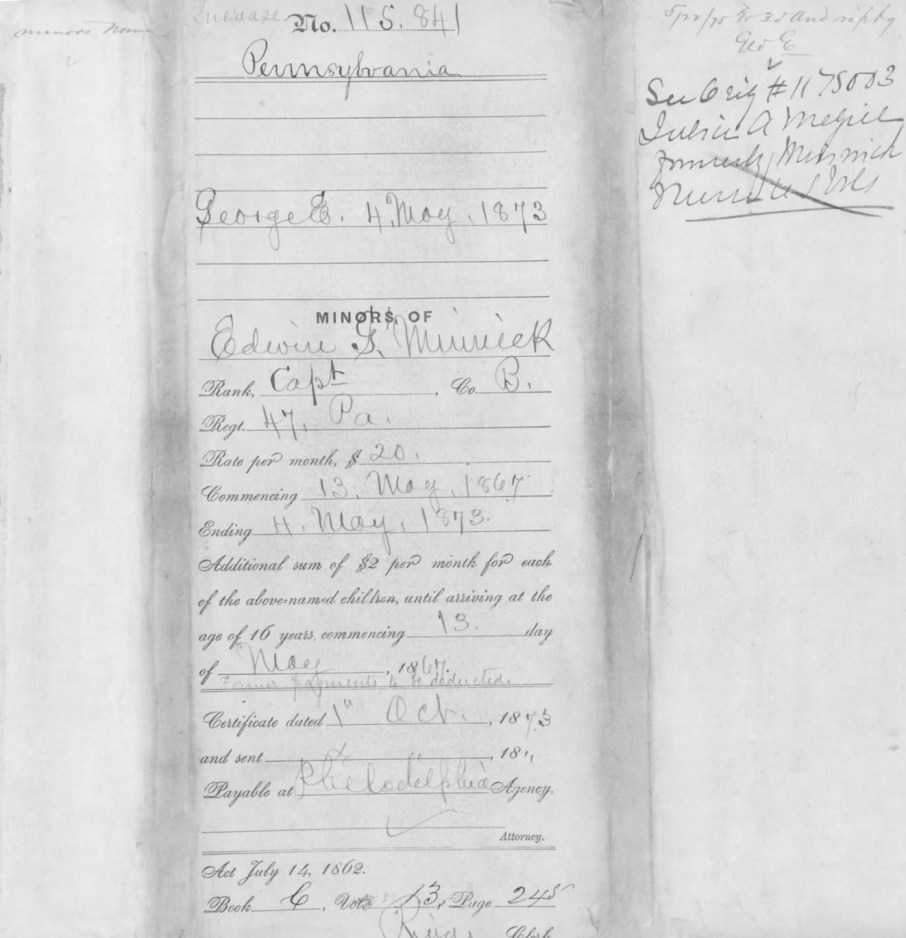 Increase
No. 115.841
Pennsylvania
George E. 4, May, 1873
MINORS OF
Edwin G. Minnick
Rank, Capt, Co. B.
Regt. 47, Pa.
Rate per month, $ 20.
Commencing 13, May, 1867
Ending 4, May, 1873.
Additional sum of $2 per month for each
of the above-named children, until arriving at the
age of 16 years, commencing 13. day
of May, 1867.
Former payments to be deducted.
Certificate dated 1" Oct., 1873
and sent ", 18",
Payable at Philadelphia Agency.
Attorney.
Act July 14, 1862.
Book C, Vol. 13, Page 245
Clerk
minors name
Geo E
See Orig # 1175003
A
formerly Minnick